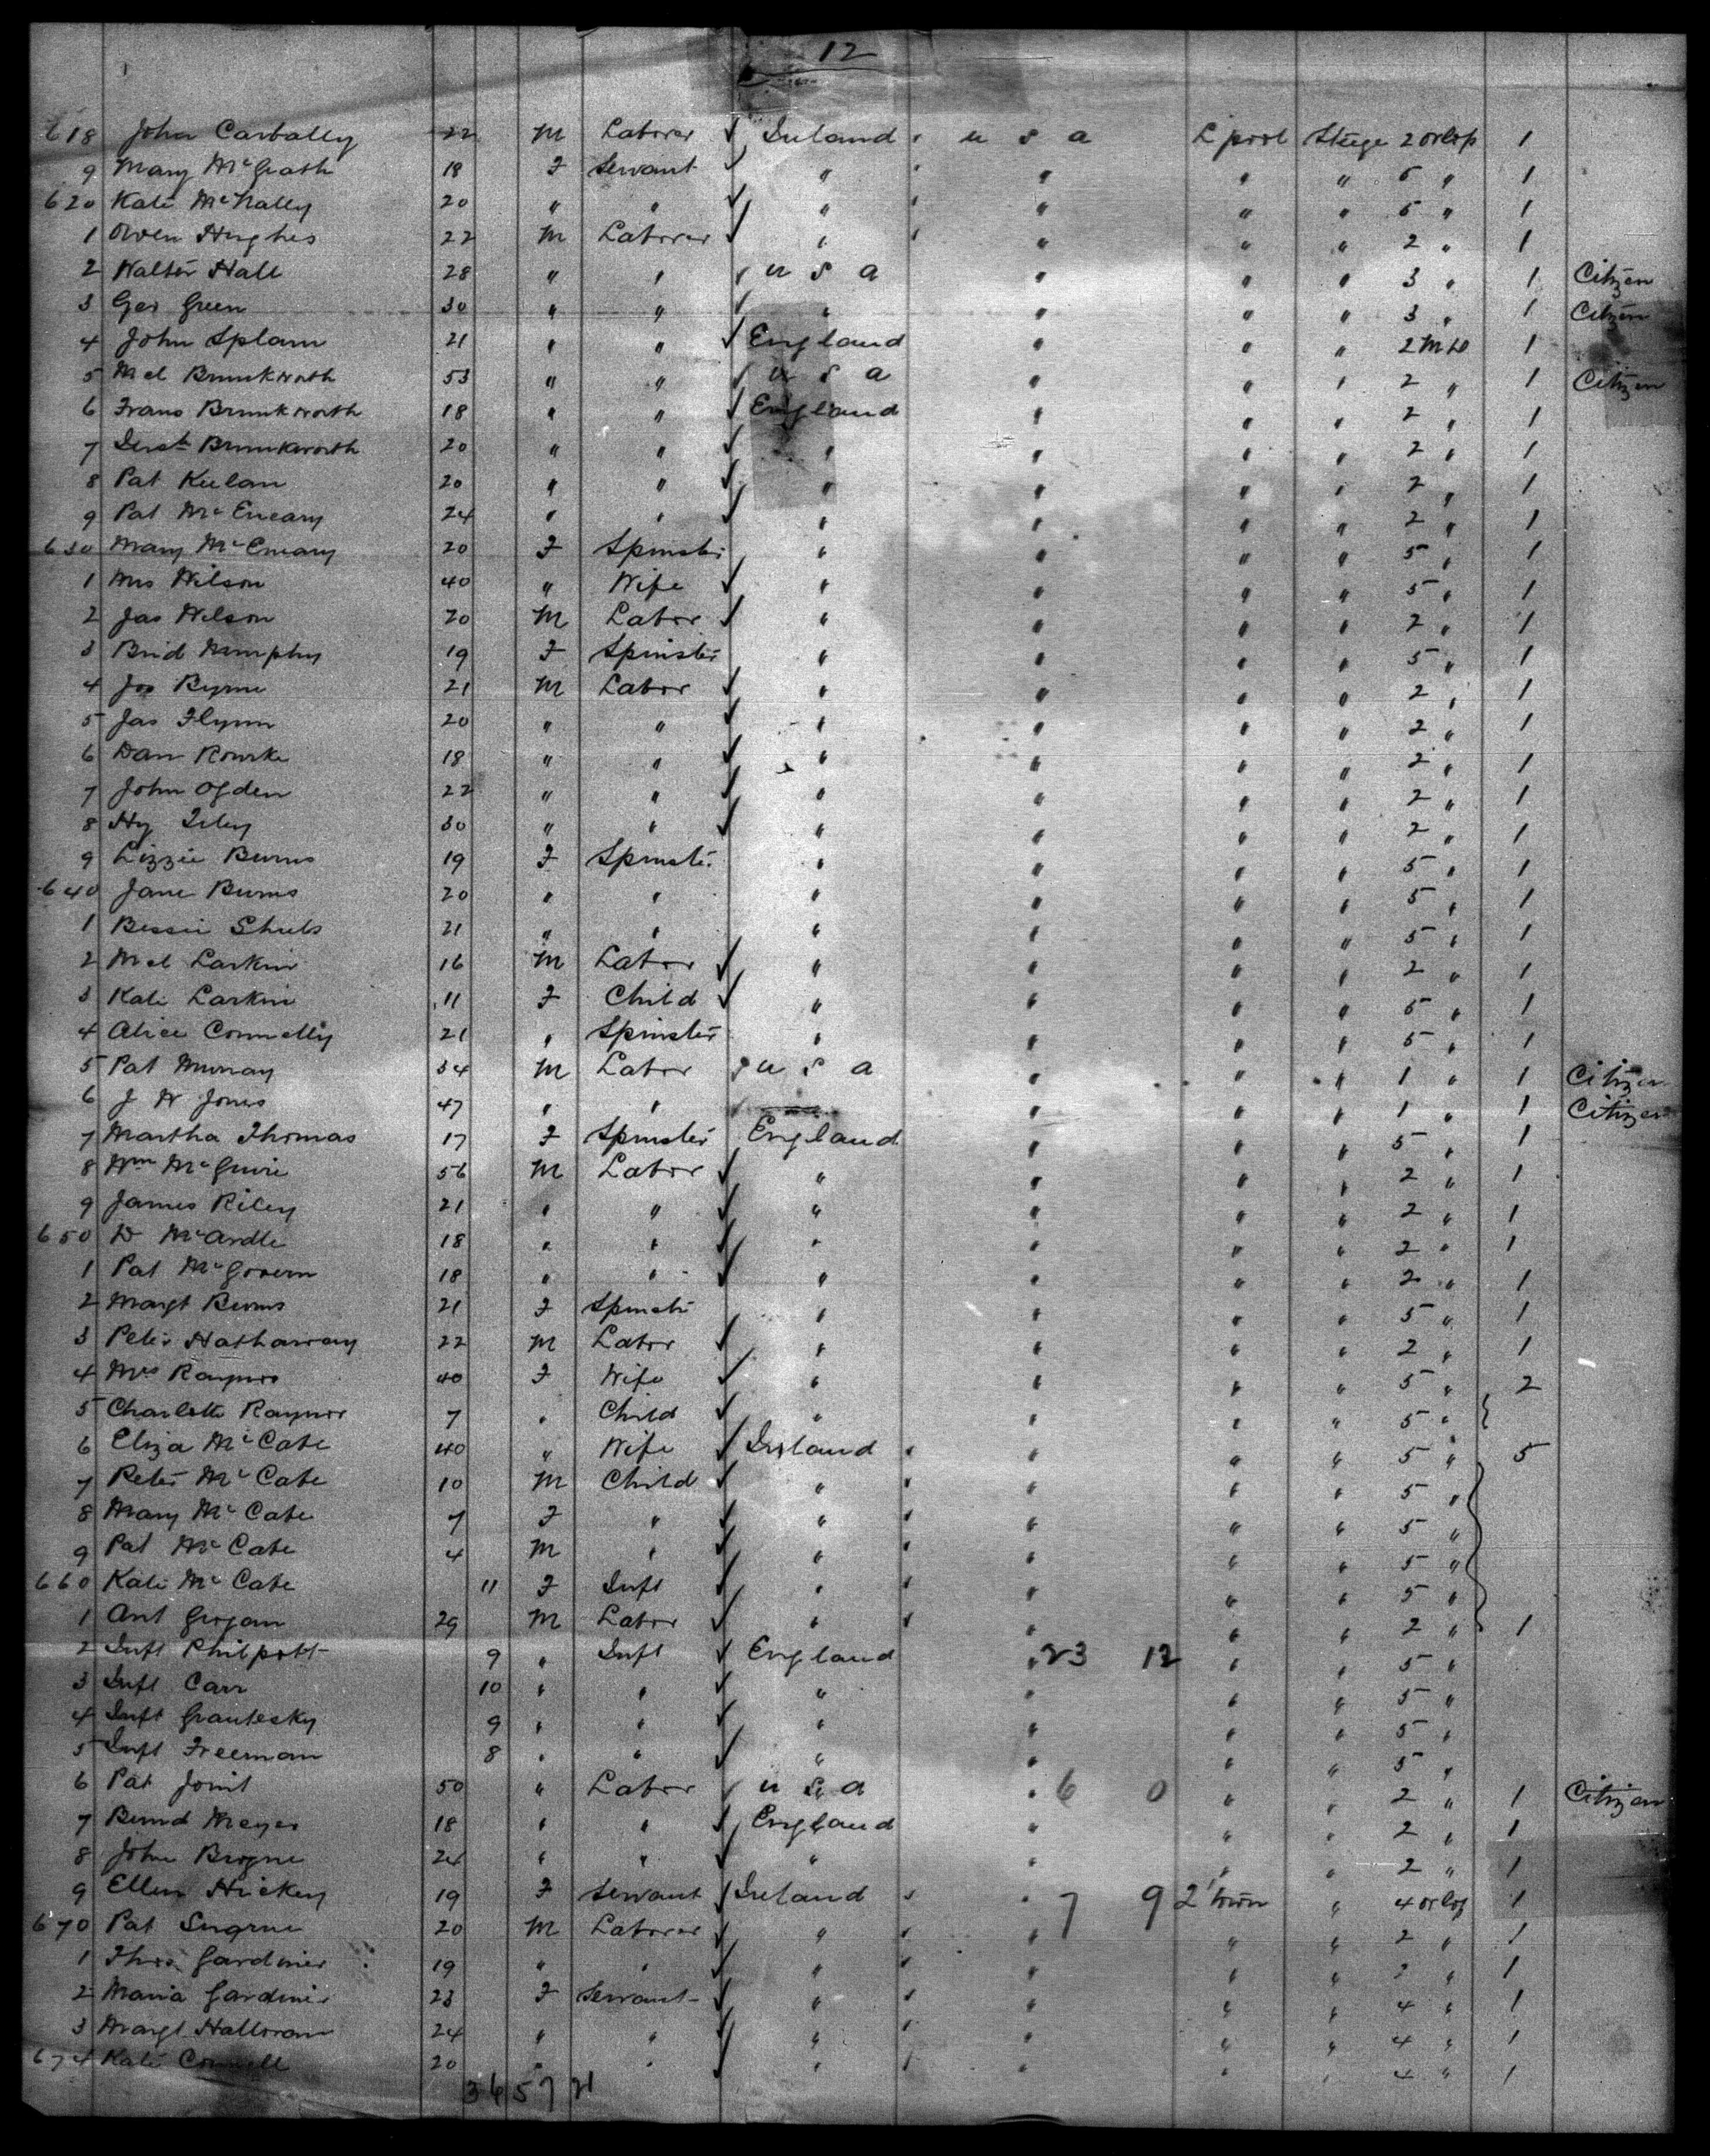 12
618 John Carbally 22 M Laborer ✓ Ireland " U S A L pool Stege 2 orlop 1
9 Mary McGrath 18 F Servant ✓ " " " " " 5 " 1
620 Kate McNally 20 " " ✓ " " " " " 5 " 1
1 Owen Hughes 22 M Laborer ✓ " " " " " 2 " 1
2 Walter Hall 28 " " ✓ U S A " " " 3 " 1 Citizen
3 Geo Green 30 " " ✓ " " " " 3 " 1 Citizen
4 John Splann 21 " " ✓ England " " " 2 M D 1
5 Mcl Brunkworth 53 " " ✓ U S A " " " 2 " 1 Citizen
6 Frans Brunkworth 18 " " ✓ England " " " 2 " 1
7 Brunkworth 20 " " ✓ " " " " 2 " 1
8 Pat Keelan 20 " " ✓ " " " " 2 " 1
9 Pat McEneany 24 " " ✓ " " " " 2 " 1
630 Mary McEneany 20 F Spinster " " " " 5 " 1
1 Mrs Wilson 40 " Wife ✓ " " " " 5 " 1
2 Jas Wilson 20 M Labor ✓ " " " " 2 " 1
3 Brid Murphy 19 F Spinster " " " " 5 " 1
4 Jos Byrne 21 M Labor ✓ " " " " 2 " 1
5 Jas Flynn 20 " " ✓ " " " " 2 " 1
6 Dan Rourke 18 " " ✓ " " " " 2 " 1
7 John Ogden 22 " " ✓ " " " " 2 " 1
8 Hy 30 " " ✓ " " " " 2 " 1
9 Lizzie Burns 19 F Spinster " " " " 5 " 1
640 Jane Burns 20 " " " " " " 5 " 1
1 Bessie Shiels 21 " " " " " " 5 " 1
2 Mcl Larkin 16 M Labor ✓ " " " " 2 " 1
3 Kate Larkin 11 F Child ✓ " " " " 5 " 1
4 Alice Connelly 21 " Spinster " " " " 5 " 1
5 Pat Murray 34 M Labor U S A " " " 1 " 1 Citizen
6 J W Jones 47 " " " " " 1 " 1 Citizen
7 Martha Thomas 17 F Spinster England " " " 5 " 1
8 Wm McGuire 56 M Labor ✓ " " " " 2 " 1
9 James Riley 21 " " ✓ " " " " 2 " 1
650 D McArdle 18 " " ✓ " " " " 2 " 1
1 Pat McGovern 18 " " ✓ " " " " 2 " 1
2 Margt Burns 21 F Spinster " " " " 5 " 1
3 Peter Hathaway 22 M Labor ✓ " " " " 2 " 1
4 Mrs Raynor 40 F Wife ✓ " " " " 5 " 2
5 Charlotte Raynor 7 " Child ✓ " " " " 5 "
6 Eliza McCabe 40 " Wife ✓ Ireland " " " " 5 " 5
7 Peter McCabe 10 M Child ✓ " " " " " 5 "
8 Mary McCabe 7 F " ✓ " " " " " 5 "
9 Pat McCabe 4 M " ✓ " " " " " 5 "
660 Kate McCabe 11 F Inft ✓ " " " " " 5 "
1 Ant Grogan 29 M Labor ✓ " " " " " 2 " 1
2 Inft Philpott 9 " Inft ✓ England " 23 12 " " 5 "
3 Inft Carr 10 " " ✓ " " " " 5 "
4 Inft Grautesky 9 " " ✓ " " " " 5 "
5 Inft Freeman 8 " " ✓ " " " " 5 "
6 Pat Joint 50 " Labor ✓ U S A " 6 0 " " 2 " 1 Citizen
7 Bernd Meyer 18 " " ✓ England " " " 2 " 1
8 John Brogne 24 " " ✓ " " " " 2 " 1
9 Ellen Hickey 19 F Servant ✓ Ireland " " 7 9 2'town " 4 orlop 1
670 Pat Sugrue 20 M Laborer ✓ " " " " " 2 " 1
1 Thos Gardiner 19 " " ✓ " " " " " 2 " 1
2 Maria Gardiner 23 F Servant ✓ " " " " " 4 " 1
3 Margt Halloran 24 " " ✓ " " " " " 4 " 1
674 Kate Connell 20 " " ✓ " " " " " 4 " 1